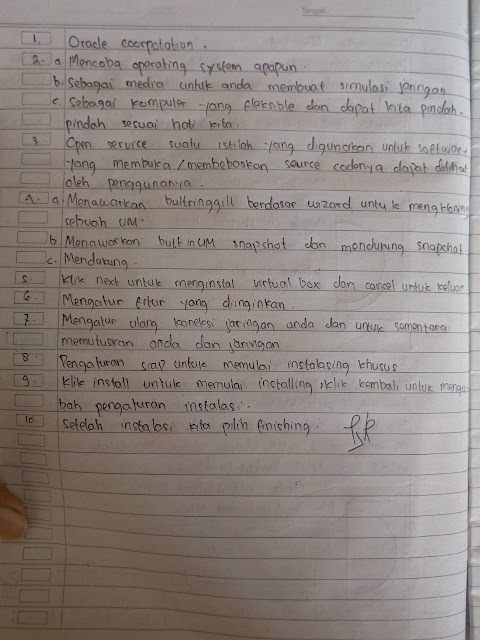 Tanggal
1. Oracle coorpotation.
2. a. Mencoba operating system apapun.
b. Sebagai media untuk anda membuat simulasi jaringan
c. Sebagai komputer yang fleksible dan dapat kita pindah-
pindah sesuai hati kita.
3. Open service suatu istilah yang digunakan untuk software
yang membuka/membebaskan source codenya dapat dilihat
oleh penggunanya.
4. a. Menawarkan berdasar wizard untuk mengkloning
sebuah UM.
b. Menawarkan built in UM snapshot dan mendukung snapchat
c. Mendukung.
5 Klik next untuk menginstal virtual box dan cancel untuk keluar
6. Mengatur fitur yang diinginkan.
7. Mengatur ulang koneksi jaringan anda dan untuk sementara
memutuskan anda dan jaringan
8. Pengaturan siap untuk memulai instalasing khusus
9. Klik install untuk memulai installing iklik kembali untuk mengu-
bah pengaturan instalasi.
10 setelah instalasi kita pilih finishing.